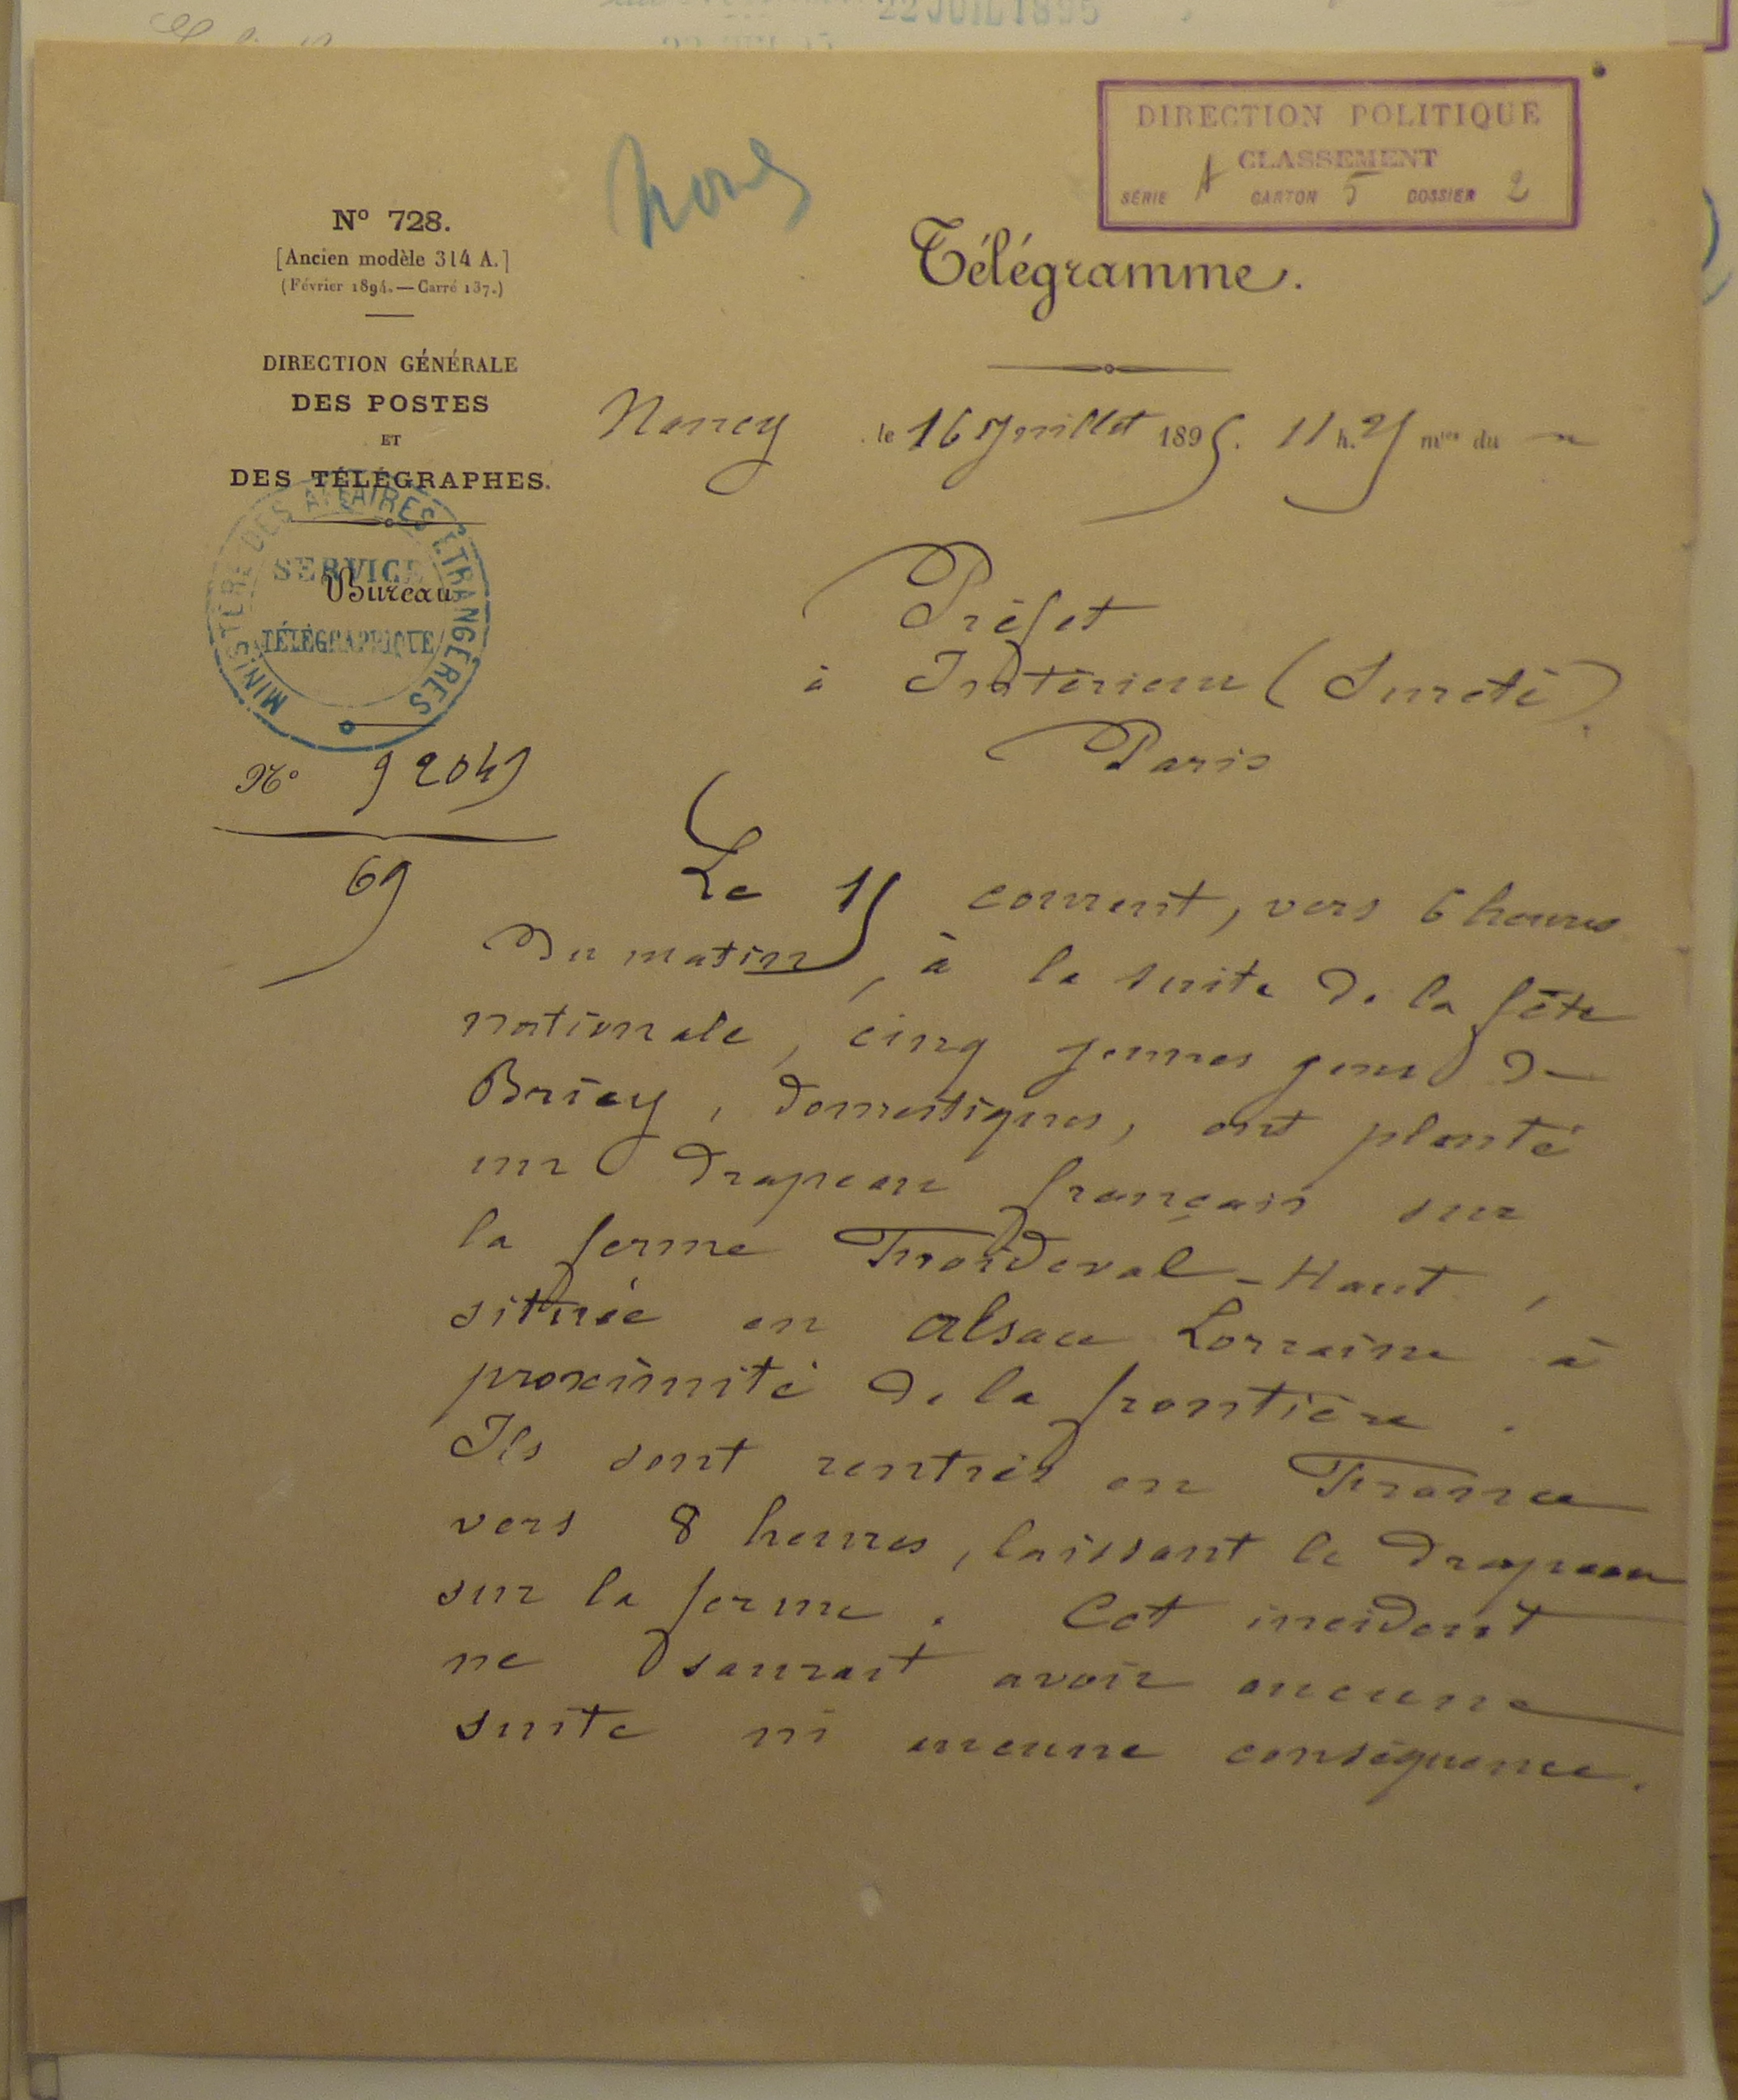 22 JUIL 1895
DIRECTION POLITIQUE
CLASSEMENT
SÉRIE A CARTON 5 DOSSIER 2
Nord
N° 728.
[Ancien modèle 314 A.]
(Février 1894. — Carré 137.)
Télégramme.
DIRECTION GÉNÉRALE
DES POSTES
ET
DES TÉLÉGRAPHES.
Nancy le 16 Juillet 1895. 11 h. 25 mes du m
MINISTÈRE DES AFFAIRES ETRANGÈRES
SERVICE
TÉLÉGRAPHIQUE
Bureau
Préfet
à Intérieur (Sureté)
Paris
N° 92049
69
Le 15 courrent, vers 6 heures
du matin, à la suite de la fête
nationale, cinq jeunes gens de
Briey, domestiques, ont planté
un drapeau français sur
la ferme Froideval-Haut,
située en Alsace Lorraine à
proximité de la frontière.
Ils sont rentrés en France
vers 8 heures, laissant le drapeau
sur la ferme. Cet incident
ne saurait avoir aucune
suite ni aucune conséquence.